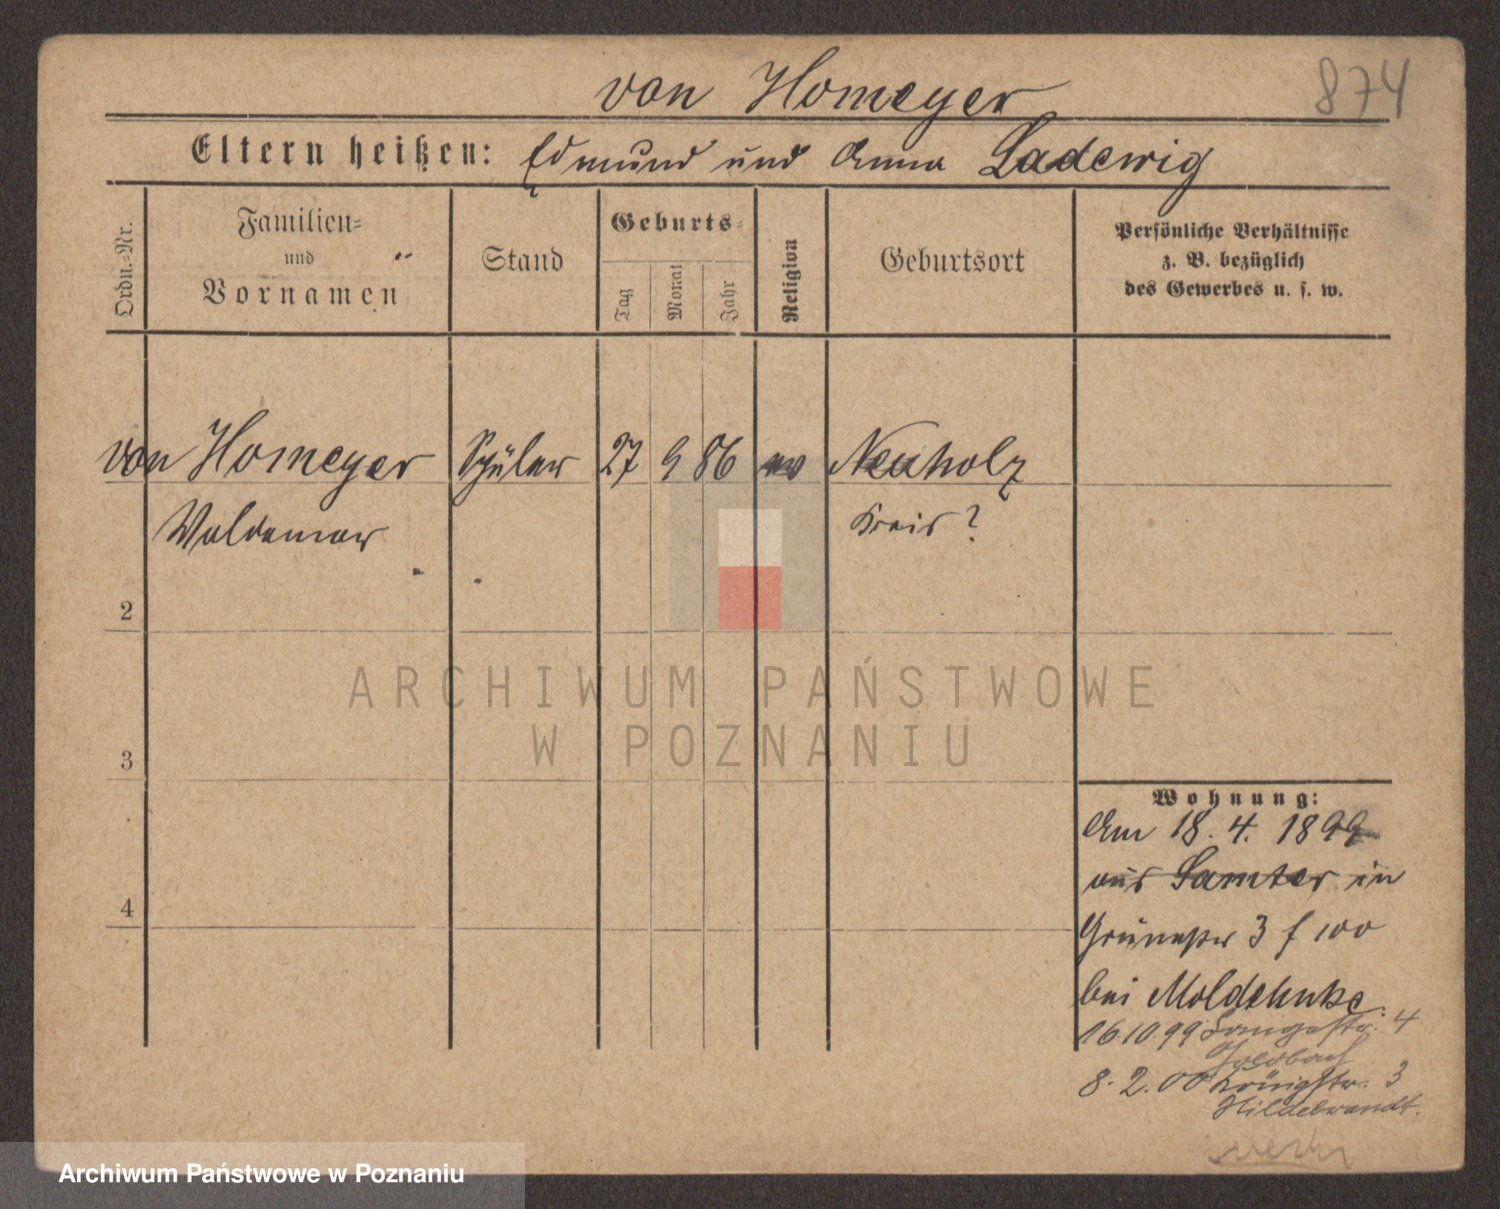 von Homeyer
874
Eltern heißen: Edmund und Anna Ladewig
Ordn.-Nr.
Familien-
und
Vornamen
Stand
Geburts-
Tag
Monat
Jahr
Religion
Geburtsort
Persönliche Verhältnisse
z. B. bezüglich
des Gewerbes u. s. w.
von Homeyer Schüler 27 9 86 ev Neuholz
Waldemar Kreis?
2
3
4
ARCHIWUM PAŃSTWOWE
W POZNANIU
Wohnung:
Am 18. 4. 1899
aus Samter in
Grünestr 3 f 100
bei Moldehnke.
16.10.99 Langestr. 4
8. 2. 00 Königstr. 3
Hildebrandt.
Archiwum Państwowe w Poznaniu